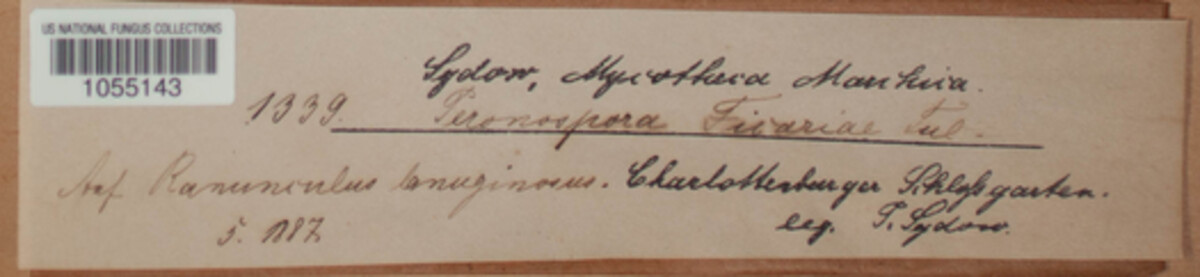 US NATIONAL FUNGUS COLLECTIONS
1055143
Sydow, Mycotheca Marchica.
1339. Peronospora Ficariae Tul.
Auf Ranunculus lanuginosus. Charlottenburger Schloßgarten.
5. 1887. leg. P. Sydow.